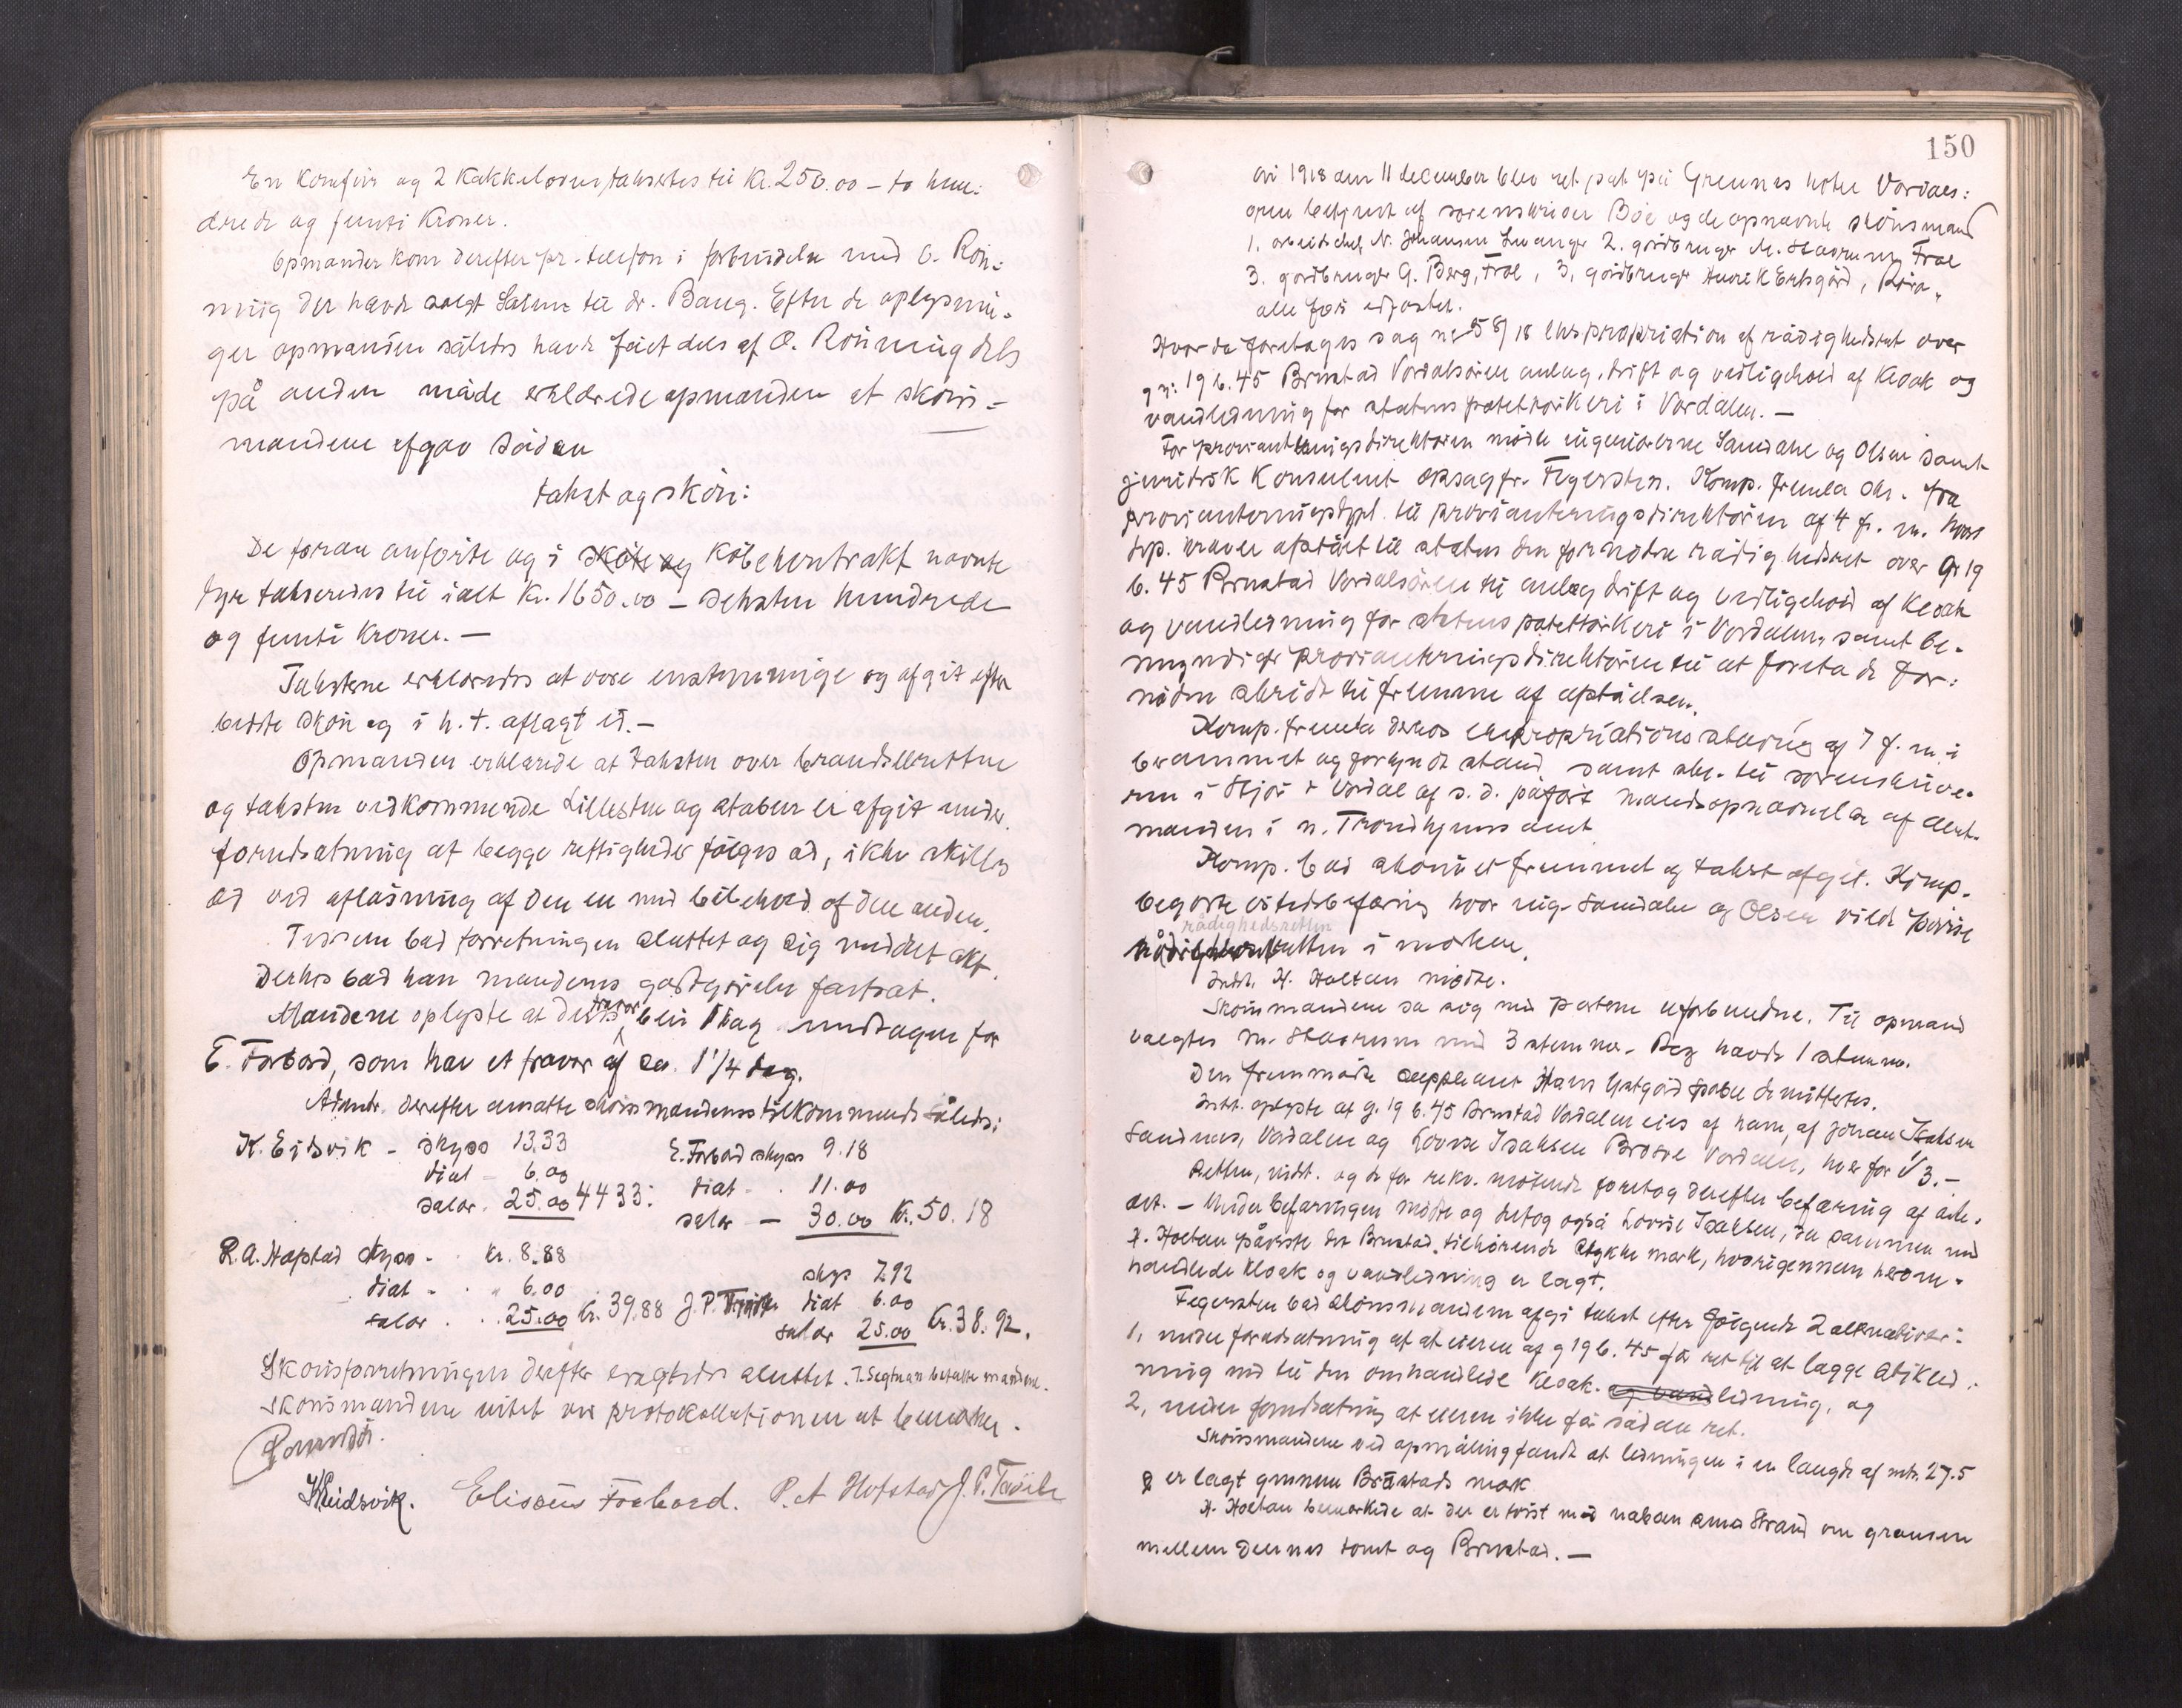 En komfur og 2 kakkelovner takseres til kr. 250.00 – to hun:
drede og femti kroner.
Opmanden kom derefter pr. telefon i forbindelse med O. Rön:
ning der havde solgt Salme til dr. Baug. Efter de oplysnin:
ger opmanden således havde fået dels af O. Rönning dels
på anden måde erklærede opmanden at skjöns-
mandene afgav sådan
takst og skjön:
De foran anförte og i sköte og köbekontrakt nævnte
dyr takseredes til ialt kr. 1650.00 – seksten hundrede
og femti kroner. –
Taksterne erklæredes at være enstemmige og afgit efter
bedste skjön og i h. t. aflagt ed. –
Opmanden erklærede at taksten over brændselsretten
og taksten vedkommende Lillestuen og stabur er afgit under
forudsætning af begge rettigheder fölges ad, ikke skilles
ad ved aflösning af den ene med bibehold af den anden.
Tessem bad forretningen sluttet og sig meddelt akt.
Derhos bad han mandens godtgjörelse fastsat.
Mandene oplyste at deres fravær blir 1 dag undtagen for
E. Forbord, som har et fravær af ca. 1 1/4 dag.
Admstr. derefter ansatte skjönsmandenes tilkommende således:
K. Eidsvik – skyss 13.33 E. Forbord skyss 9.18
diæt – 6.00 diæt . . 11.00
salær . 25.00 44 33: salær – 30.00 kr. 50.18
R. A. Hopstad skyss - . kr. 8.88 skys 7.92
diæt - . . 6.00 J. P. diæt 6.00
salær . . 25.00 kr. 39.88 salær 25.00 kr. 38.92.
Skjönsforretningen derefter sluttet. T. Segtnan betalte mandene.
Skjönsmandene intet ved protokollationen at bemærke.
K Eidsvik. Elisæus Forbord. P. A Hofstad J. P.
150
År 1918 den 11 december blev ret sat på Grennes hotel Værdals:
ören betjent af sorenskriver Böe og de opnævnte skönsmænd
1. arbeidschef N. Johansen Levanger 2. gårdbruger M. Stavrum Frol
3. gardbruger G. Berg, Frol, 3, gårdbruger Henrik Erksgård, Röra,
alle för edfæstet.
Hvor da foretages sag nr 58/18 Ekspropriation af rådighedsret over
g nr: 19 b. 45 Brustad Værdalsören anlæg, drift og vedligehold af kloak og
vandledning for statens potettörkeri i Værdalen. –
For provianteringsdirektören mödte ingeniörerne Sandahl og Olsen samt
juridisk konsulent oksagfr. Fegersten. Komp. fremla skr. fra
provianteringsdept. til provianteringsdirektören af 4 f. m. hvor
dep. kræver afstået til staten den fornödne rådighedsret over gr 19
b. 45 Brustad Værdalsören til anlæg drift og vedligehold af kloak
og vandledning for statens potettörkeri i Værdalen, samt be-
myndiger provianteringsdirektören til at foreta de for:
nödne skridt til fremme af afståelsen.
Komp. fremla derhos ekspropriationsstevning af 7 f. m. i
berammet og forkyndt stand samt skr. til sorenskrive-
ren i Stjör & Værdal af s. d. påfört mandsopnævnelse af amt-
manden i n. Trondhjems amt
Komp. bad skjönnet fremmet og takst afgit. Komp.
begjærte åstedsbefaring hvor ing. Sandahl og Olsen vilde påvise
rådighedsretten
rådighedsretten i marken.
Indst. H. Holtan mödte.
Skjönsmandene sa sig med parterne uforbundne. Til opmand
valgtes M. Stavrum med 3 stemmer. Berg havde 1 stemme.
Den fremmödte suppleant Hans demitteres.
Indst. oplyste at g. 19 b. 45 Brustad Værdalen eies af ham, af Johan Isaksen
Sandnes, Værdalen og Lovise Isaksen Værdalen, hver for 1/3. –
Retten, indst. og de for rekv. mötende foretog derefter befaring af åste-
det. – Under befaringen mödte og deltog også Lovise Isaksen, da sammen med
H. Holtan påviste det Brustad tilhörende stykke mark, hvorigjennem her om-
handlede kloak og vandledning er lagt.
Fegersten bad skönsmandene afgi takst efter fölgende 2 alternativer:
1, under forudsætning af at eieren af g 19 b. 45 får ret til at lægge stikled:
ning ned til den omhandlede kloak. og vandledning, og
2, under forudsætning at eieren ikke får sådan ret.
Skönsmandene ved opmåling fandt at ledningen i en længde af mtr. 27.5
er lagt gjennem Brustads mark
H. Holtan bemærkede at der er tvist med naboen Anna Strand om grænsen
mellem dennes tomt og Brustad. –